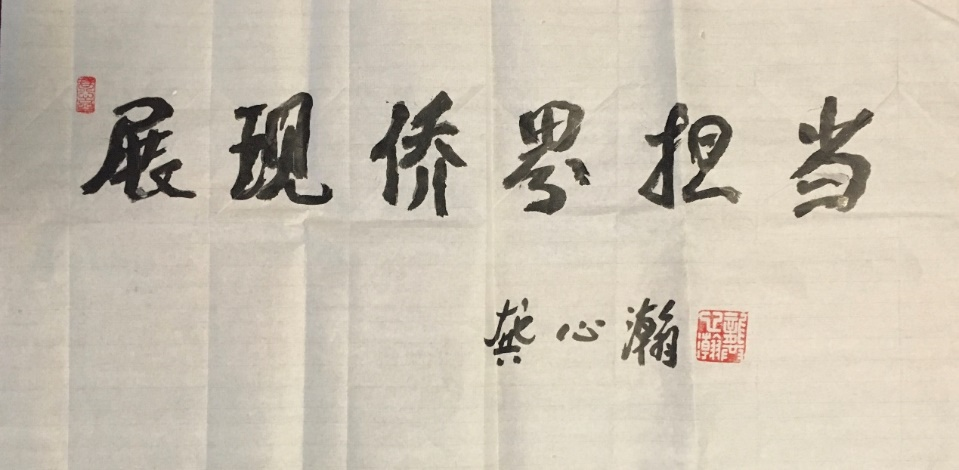 展现侨界担当
龚心瀚